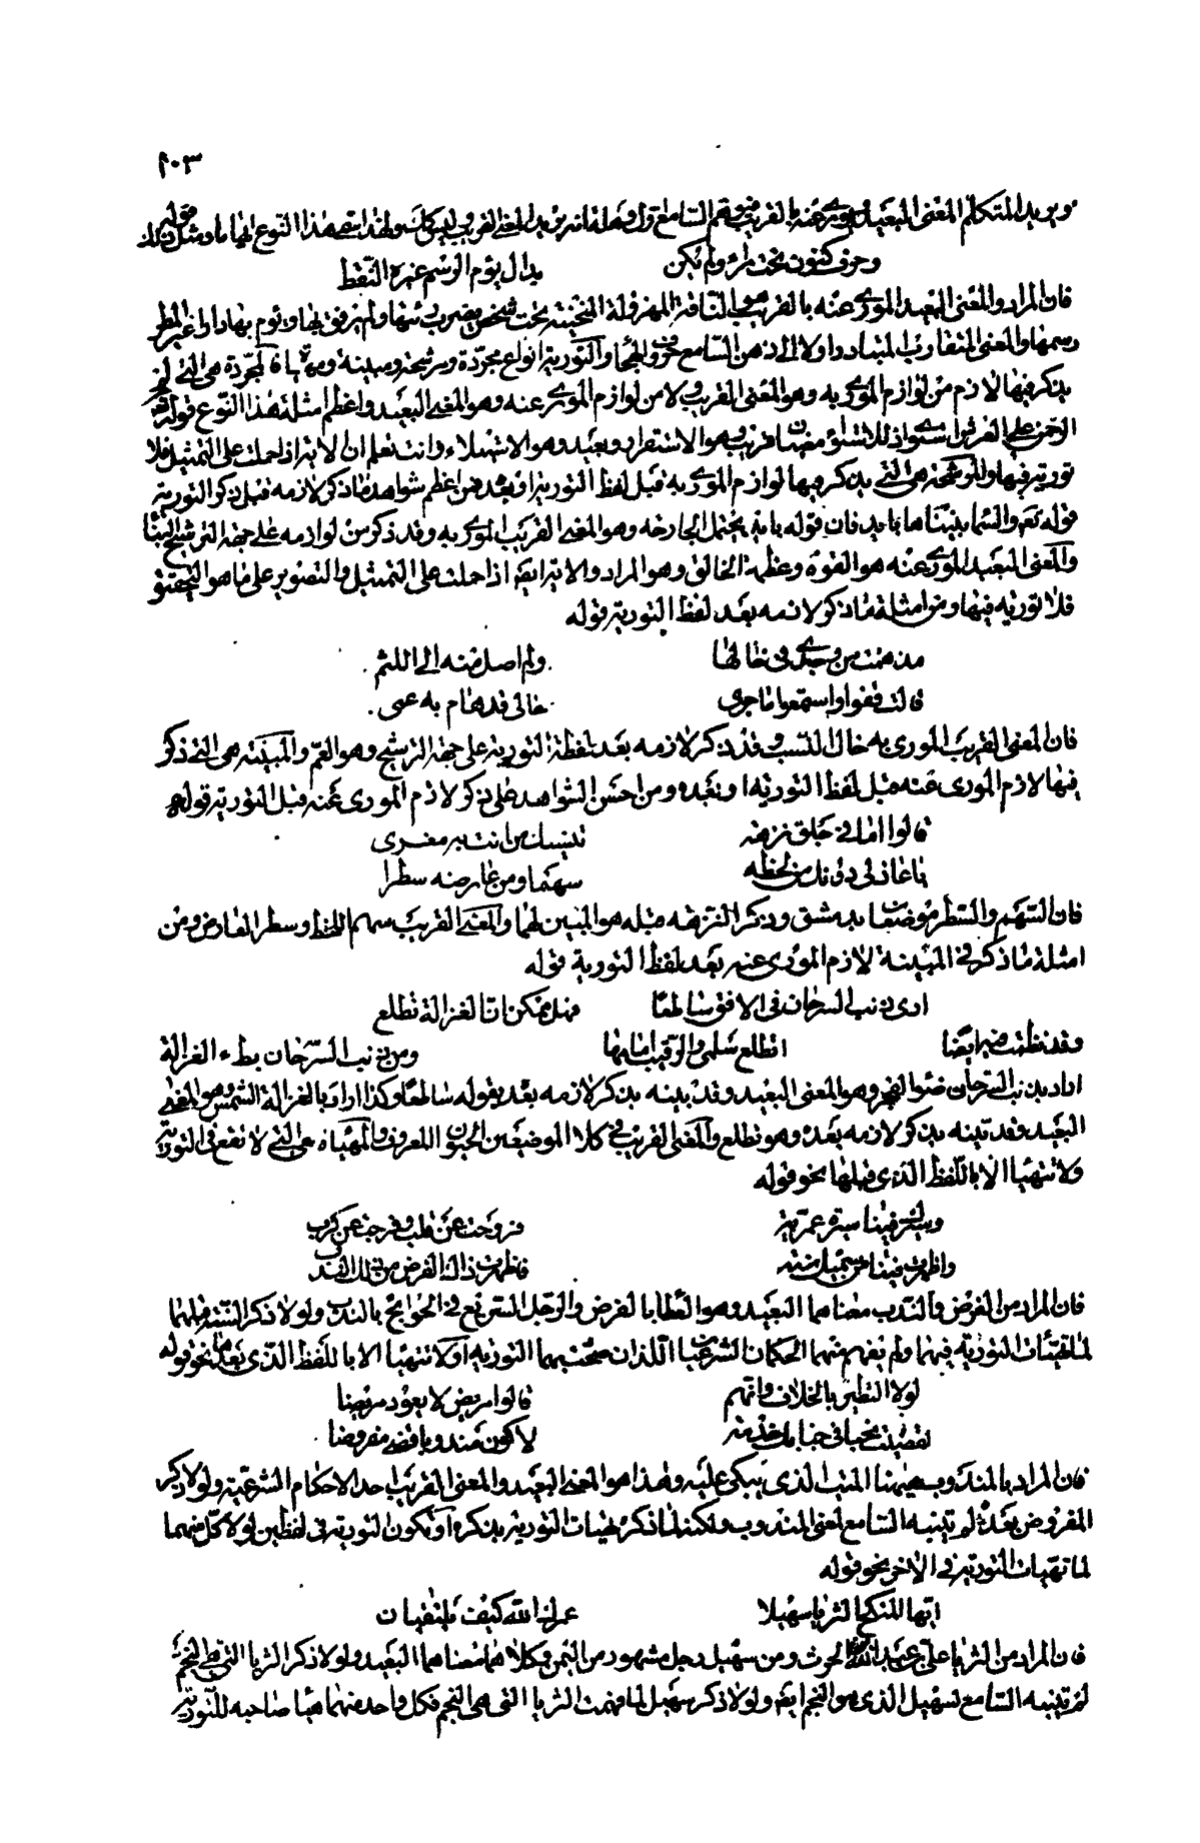 ١٠٣
ويريد المتكلم المعنى البعيد ويوري عنه بالقريب فيتوهم السامع اول وهلة انه يريد المعنى القريب وليس كذلك ولهذا سمي هذا النوع ايهاما ومثل ذلك قوله
وحرف كنون تحت راء ولم يكن بدال يؤم الرسم غيره النقط
فان المراد والمعنى البعيد المورى عنه بالقريب هو الناقة المهزولة المنحنية تحت شخص يضرب رئتها ولم يرفق بها ويؤم بها دارا غير المطر
رسمها والمعنى المتقارب المتبادر اولا الى ذهن السامع حروف الهجاء والتورية انواع مجردة ومرشحة ومبينة ومهياة فالمجردة هي التي لم
يذكر فيها لازم من لوازم المورى به وهو المعنى القريب ولا من لوازم المورى عنه وهو المعنى البعيد واعظم امثلة هذا النوع قوله تعالى
الرحمن على العرش استوى اذ للاستواء معنيان قريب وهو الاستقرار وبعيد وهو الاستيلاء وانت تعلم ان لا تورية اذا حملت على التمثيل فلا
تورية فيها والمرشحة هي التي يذكر فيها لوازم المورى به قبل لفظ التورية او بعده فمن اعظم شواهد ما ذكر لازمه قبل ذكر التورية
قوله تعالى والسما بنيناها بايد فان قوله بايد يحتمل الجارحة وهو المعنى القريب المورى به وقد ذكر من لوازمه على جهة الترشيح البنا
والمعنى البعيد المورى عنه هو القوة وعظمة الخالق وهو المراد والاية ايضا اذا حملت على التمثيل والتصوير على ما هو التحقيق
فلا تورية فيها ومن امثلة ما ذكر لازمه بعد لفظ التورية قوله
مذ همت من وجدي في خالها ولم اصل منه الى اللثم
قالت قفوا واستمعوا ما جرى خالي قد هام به عمي
فان المعنى القريب المورى به خال النسب وقد ذكر لازمه بعد لفظة التورية على جهة الترشيح وهو العم والمبينة هي التي ذكر
فيها لازم المورى عنه قبل لفظ التورية او بعده ومن احسن الشواهد على ذكر لازم المورى عنه قبل التورية قوله
قالوا اما في جلق نزهة تنسيك من انت به مغرى
يا عاذلي دونك من لحظه سهما ومن عارضه سطرا
فان السهم والسطر موضعان بدمشق وذكر النزهة قبله هو المبين لهما والمعنى القريب سهم اللحظ وسطر العارض ومن
امثلة ما ذكر في المبينة لازم المورى عنه بعد لفظ التورية قوله
ارى ذنب السرحان في الافق ساطعا فهل ممكن ان الغزالة تطلع
وقد نظمت فيه ايضا اتطلع سلمى والرقيب امامها ومن ذنب السرحان بطء الغزالة
اراد بذنب السرحان ضوء الفجر وهو المعنى البعيد وقد بينه بذكر لازمه بعد بقوله ساطعا وكذا اراد بالغزالة الشمس وهو المعنى
البعيد فقد بينه بذكر لازمه بعده وهو تطلع والمعنى القريب في كلا الموضعين الحيوان المعروف والمهياة هي التي لا تقع في التورية
ولا تتهيا الا باللفظ الذي قبلها نحو قوله
وسيرت فينا سيرة عمرية فروحت عن قلب وفرجت عن كرب
واظهرت فينا من سميك سنة فاظهرت ذاك الفرض من ذلك الندب
فان المراد من الفرض والندب معناهما البعيد وهو العطا بالفرض والرجل السريع في الحوائج بالندب ولولا ذكر السنة قبلهما
لما تهيات التورية فيهما ولم يفهم منهما الحكمان الشرعيان اللذان صحت بهما التورية او لا تتهيا الا باللفظ الذي بعدها نحو قوله
لولا التطير بالخلاف وانهم قالوا مريض لا يعود مريضا
لقضيت نحبا في جنابك خدمة لاكون مندوبا قضى مفروضا
فان المراد بالمندوب ههنا الميت الذي يبكى عليه وهذا هو المعنى البعيد والمعنى القريب احد الاحكام الشرعية ولولا ذكر
المفروض بعده لم يتنبه السامع لمعنى المندوب ولكنه لما ذكره تهيات التورية بذكره او تكون التورية في لفظين لولا كل منهما
لما تهيات التورية في الاخر نحو قوله
ايها المنكح الثريا سهيلا عمرك الله كيف يلتقيان
فان المراد من الثريا علي بن عبد الله الحرث ومن سهيل رجل مشهور من اليمن وكلاهما معناهما البعيد ولولا ذكر الثريا التي هي النجم
لم يتنبه السامع لسهيل الذي هو النجم ايضا ولولا ذكر سهيل لما فهمت الثريا التي هي النجم فكل واحد منهما هيا صاحبه للتورية